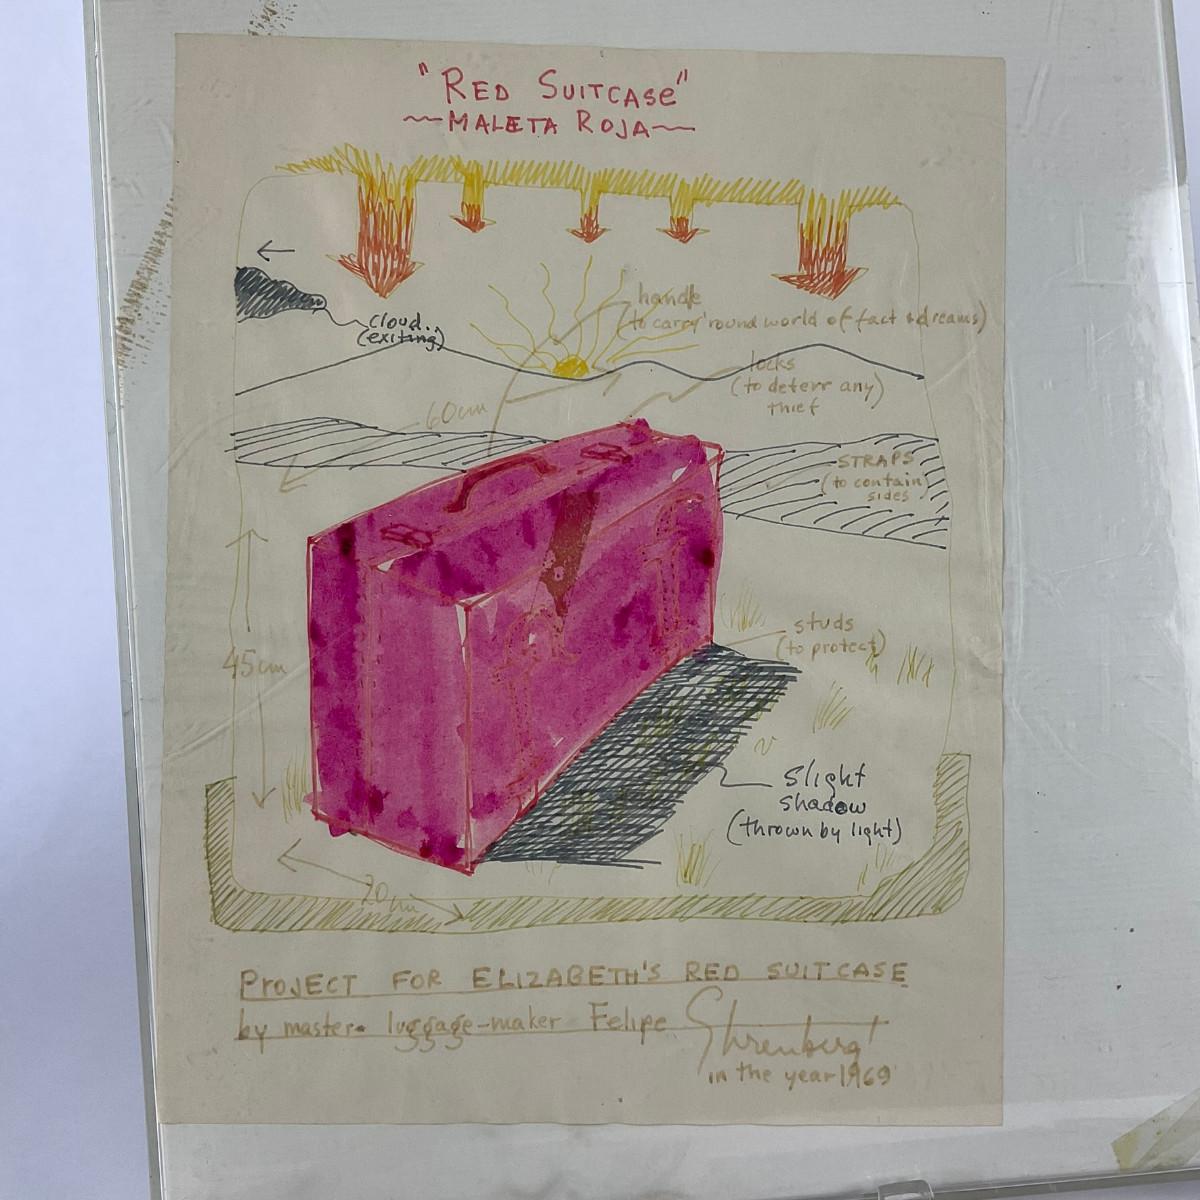 "RED SUITCASE"
~MALETA ROJA~
handle
(to carry 'round world of fact & dreams)
cloud..
(exiting)
locks
(to deterr any)
thief
60cm
STRAPS
(to contain)
sides
studs
(to protect)
45cm
slight
shadow
(thrown by light)
20cm
PROJECT FOR ELIZABETH'S RED SUITCASE
by master luggage-maker Felipe Ehrenberg
in the year 1969